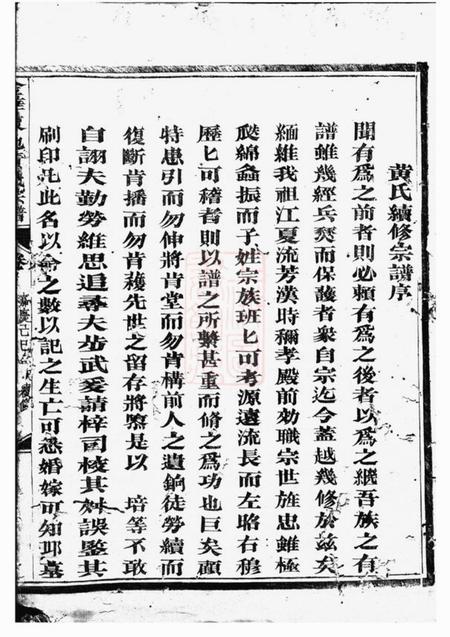 黃氏續修宗譜序
聞有爲之前者則必賴有爲之後者以爲之繼吾族之有
譜雖幾經兵燹而保護者衆自宗迄今蓋越幾修於茲矣
緬維我祖江夏流芳漢時稱孝殿前効職宗世旌忠雖極
瓞綿螽振而子姓宗族班匕可考源遠流長而左昭右穆
歷匕可稽者則以譜之所繫甚重而脩之爲功也巨矣顧
特患引而勿伸將肯堂而勿肯構前人之遺餉徒勞續而
復斷肯播而勿肯穫先世之留存將墜是以　培等不敢
自詡夫勤勞維思追尋夫步武爰請梓司校其舛誤鑒其
刷印託此名以命之數以記之生亡可悉婚嫁可知邛墓
宗譜
卷
嘉慶己巳